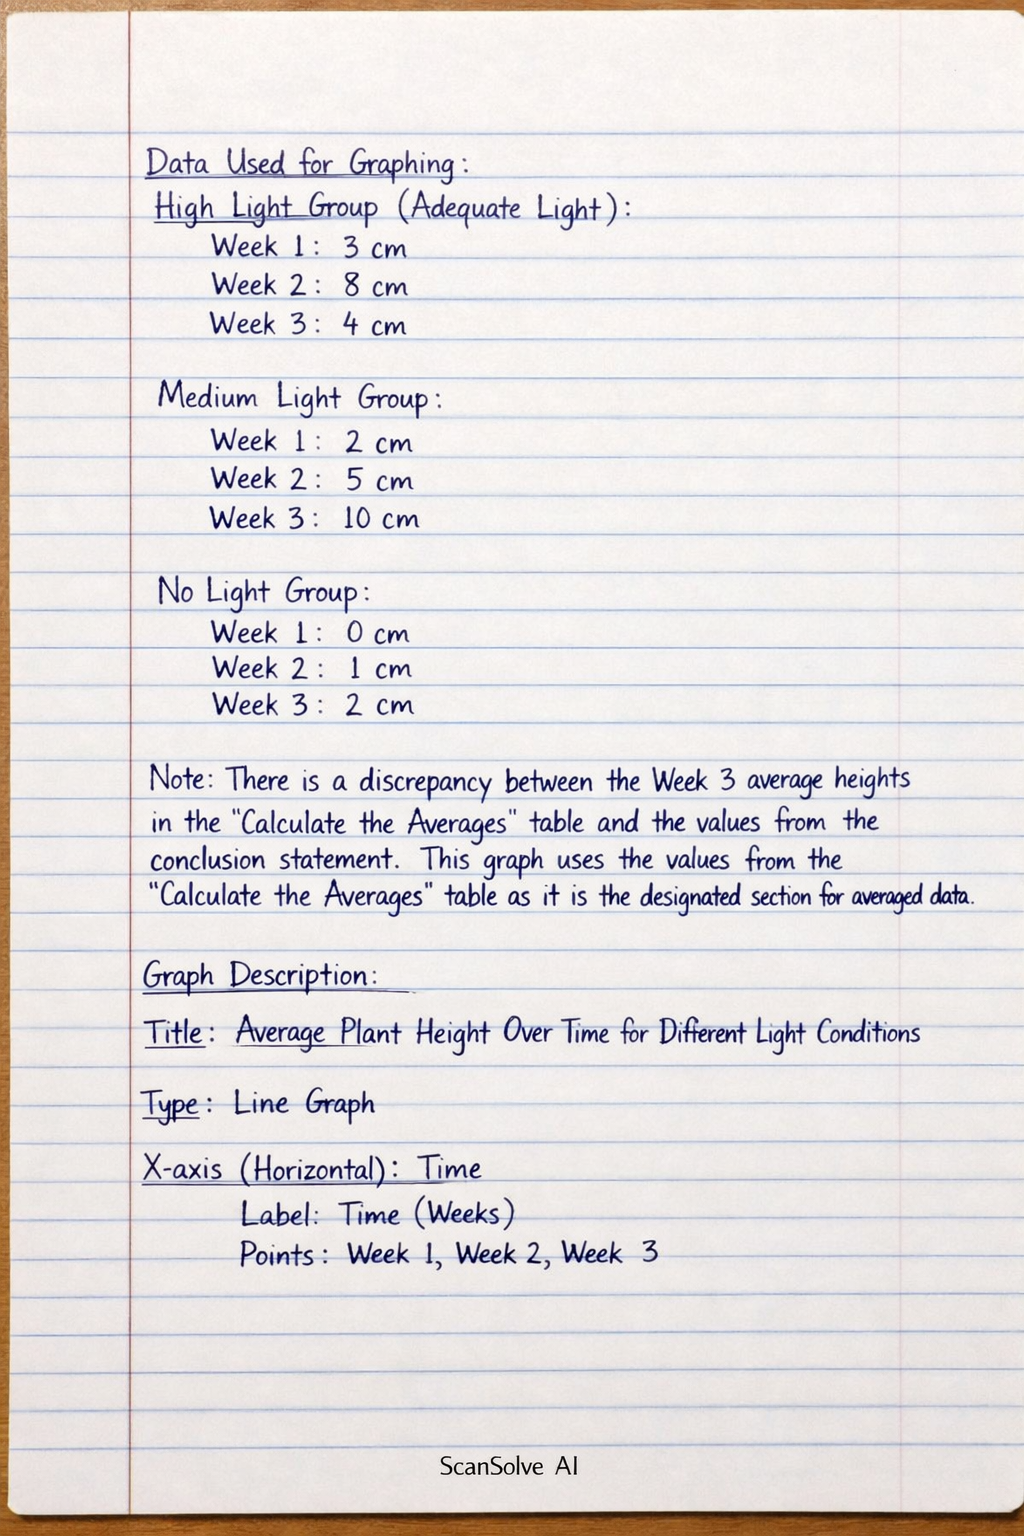 Data Used for Graphing:
High Light Group (Adequate Light):
Week 1: 3 cm
Week 2: 8 cm
Week 3: 4 cm
Medium Light Group:
Week 1: 2 cm
Week 2: 5 cm
Week 3: 10 cm
No Light Group:
Week 1: 0 cm
Week 2: 1 cm
Week 3: 2 cm
Note: There is a discrepancy between the Week 3 average heights
in the "Calculate the Averages" table and the values from the
conclusion statement. This graph uses the values from the
"Calculate the Averages" table as it is the designated section for averaged data.
Graph Description:
Title: Average Plant Height Over Time for Different Light Conditions
Type: Line Graph
X-axis (Horizontal): Time
Label: Time (Weeks)
Points: Week 1, Week 2, Week 3
ScanSolve AI